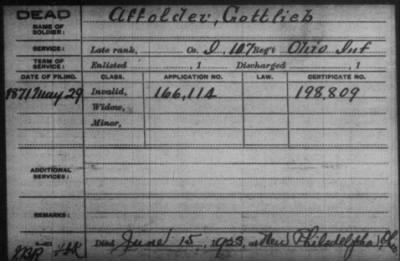 DEAD Affolder, Gottlieb
NAME OF SOLDIER:
SERVICE: Late rank, Co. I, 107 Reg't Ohio Inf
TERM OF SERVICE: Enlisted , 1 Discharged , 1
DATE OF FILING. CLASS. APPLICATION NO. LAW. CERTIFICATE NO.
1871 May 29 Invalid, 166,114 198,809
Widow,
Minor,
ADDITIONAL SERVICES:
REMARKS:
Died June 15, 1923, at New Philadelphia, O